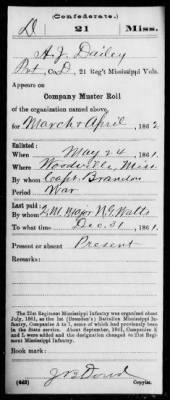 (Confederate.)
D 21 Miss.
A. J. Dailey
Pvt, Co. D, 21 Reg't Mississippi Vols.
Appears on
Company Muster Roll
of the organization named above,
for March & April, 1862
Enlisted:
When May 24, 1861.
Where Woodville, Miss.
By whom Capt. Brandon
Period War
Last paid:
By whom Q.M. Major N.G. Watts
To what time Dec. 31, 1861.
Present or absent Present
The 21st Regiment Mississippi Infantry was organized about
July, 1861, as the 1st (Brandon's) Battalion Mississippi Inf-
antry, Companies A to I, some of which had previously been
in the State service. About September, 1861, Companies K
and L were added and the designation changed to 21st Reg-
iment Mississippi Infantry.
Book mark:
(642) J B Dowd
Copyist.